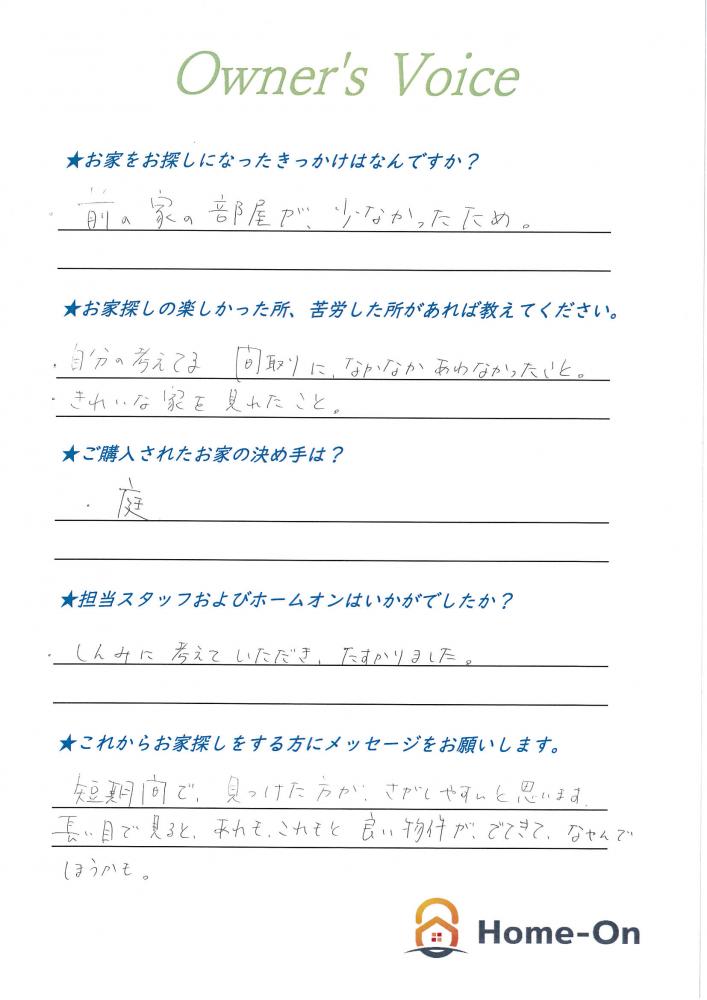 Owner's Voice
★お家をお探しになったきっかけはなんですか？
・前の家の部屋が、少なかったため。
★お家探しの楽しかった所、苦労した所があれば教えてください。
・自分の考えてる 間取りに、なかなかあわなかったこと。
・きれいな家を見れたこと。
★ご購入されたお家の決め手は？
・庭
★担当スタッフおよびホームオンはいかがでしたか？
・しんみに考えていただき、たすかりました。
★これからお家探しをする方にメッセージをお願いします。
短期間で、見つけた方が、さがしやすいと思います。
長い目で見ると、あれも、これもと良い物件が、でてきて、なやんで
しまうかも。
Home-On